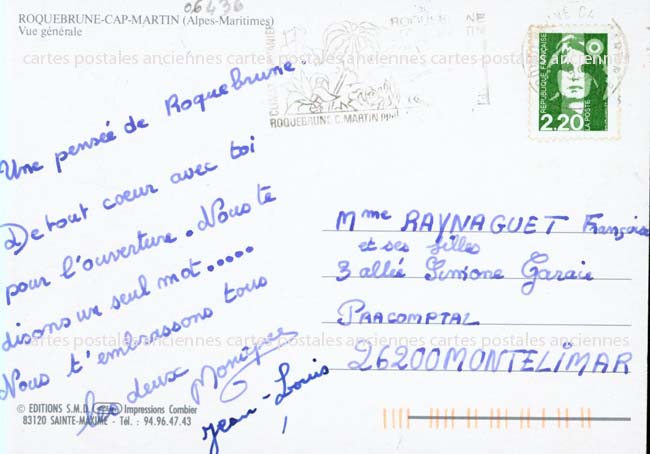 06436
ROQUEBRUNE-CAP-MARTIN (Alpes-Maritimes)
Vue générale
ROQUEBRUNE
ROQUEBRUNE C. MARTIN
REPUBLIQUE FRANÇAISE
LA POSTE
2,20
cartes postales anciennes cartes postales anciennes cartes postales anciennes
Une pensée de Roquebrune.
De tout coeur avec toi
pour l'ouverture. Nous te
disons un seul mot.....
Nous t'embrassons tous
les deux
Jean-Louis
Mme RAYNAGUET Françoise
et ses filles
3 allée Simone Garaie
PRACOMPTAL
26200 MONTELÏMAR
cartes postales anciennes cartes postales anciennes cartes postales anciennes
© EDITIONS S.M.D. Impressions Combier
83120 SAINTE-MAXIME - Tél. : 94.96.47.43